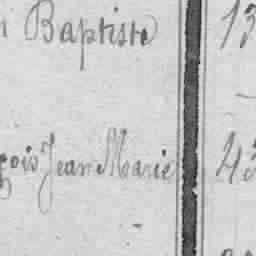 Baptiste 13
çois Jean Marie 43